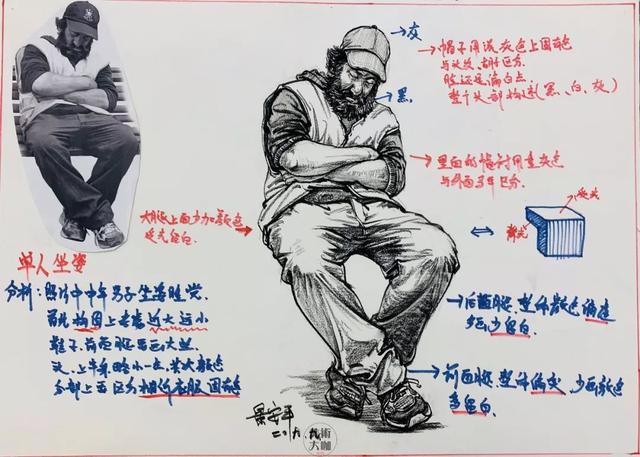 灰
帽子用浅灰色上固有色
与头发、胡子区分.
脸还是偏白点.
整个头部构成(黑、白、灰)
黑.
里面的
用重灰色
与外面马甲区分.
大腿上面少加颜色
受光留白.
受光
背光
单人坐姿
分析：照片中中年男子坐着睡觉
首先构图上考虑近大远小
鞋子、前面腿画大些
头、上半身略小一点.其次颜色
分部上要区分相邻衣服固有色
后面腿,整体颜色偏
少留白.
前面腿,整体偏灰,少画颜色
多留白.
景安平
二〇一九.
美術
大咖